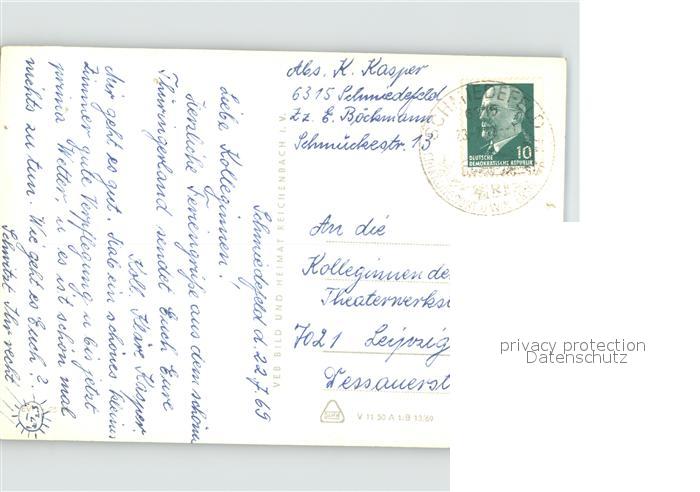 Schmiedefeld d. 22.7.69
Liebe Kolleginnen!
Herzliche Feriengrüße aus dem schönen
Thüringerland sendet Euch Eure
Koll. Kläre Kasper.
Mir geht es gut. Hab ein schönes kleines
Zimmer gute Verpflegung u bis jetzt
prima Wetter, u es ist schön mal
nichts zu tun. Wie geht es Euch?
Schwitzt Ihr recht
VEB BILD UND HEIMAT REICHENBACH I. V.
Abs. K. Kasper
6315 Schmiedefeld
Zz. E. Böckmann
Schmückestr. 13
SCHMIEDEFELD
10
DEUTSCHE
DEMOKRATISCHE REPUBLIK
An die
Kolleginnen de
Theaterwerks
7021 Leipzig
Dessauerst
V 11 50 A 1/B 13/69
privacy protection
Datenschutz